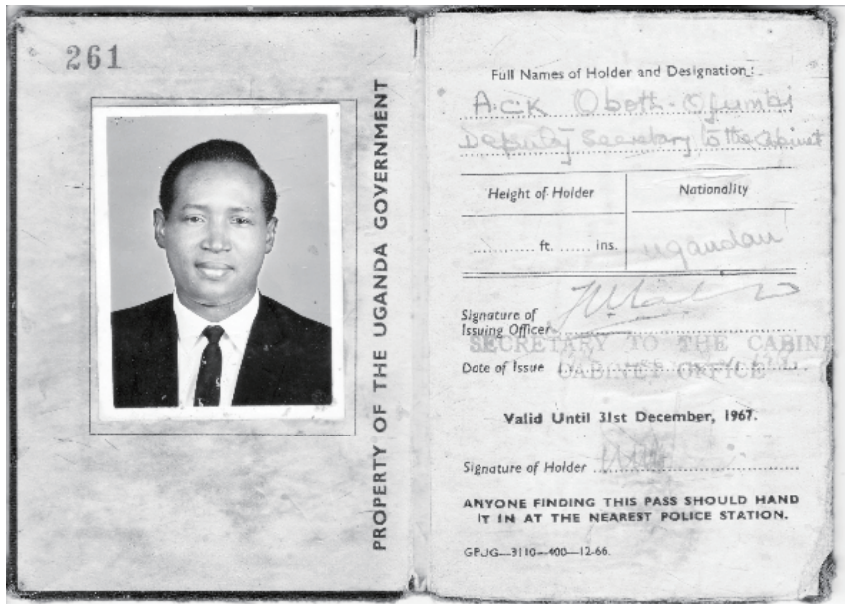 261
PROPERTY OF THE UGANDA GOVERNMENT
Full Names of Holder and Designation:
A.C.K Oboth-Ofumbi
Deputy Secretary to the Cabinet
Height of Holder
Nationality
ft. ins.
Ugandan
Signature of
Issuing Officer
SECRETARY TO THE CABINE
Date of Issue
CABINET OFFICE
Valid Until 31st December, 1967.
Signature of Holder
ANYONE FINDING THIS PASS SHOULD HAND
IT IN AT THE NEAREST POLICE STATION.
GPUG—3110—400—12-66.